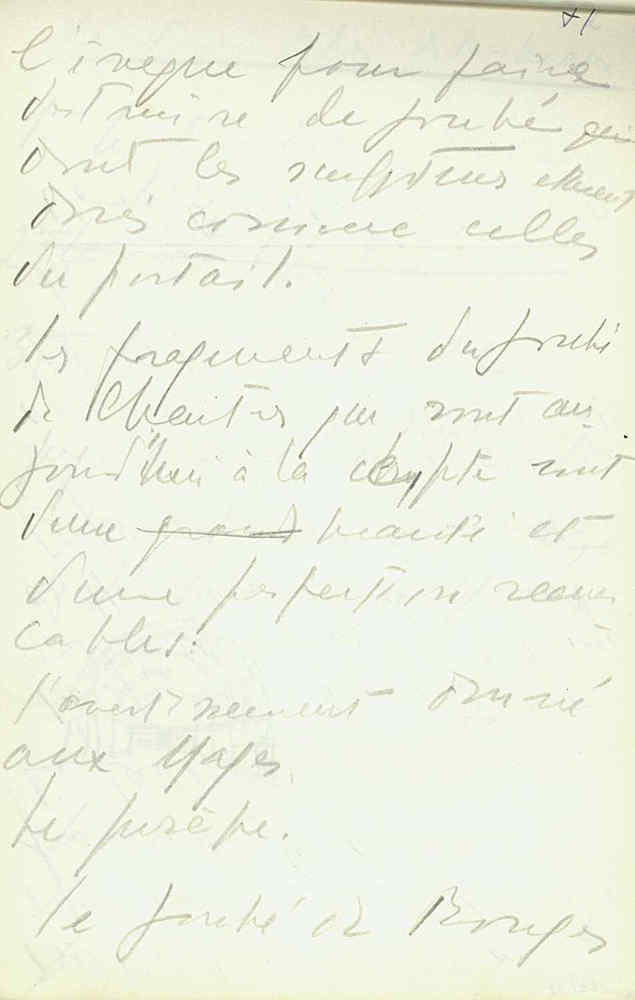 81
l'éveque pour faire
détruire de jubé qui
dont les sculptures étaient
dorés comme celles
du portail.
les fragments du jubé
de Chartres qui sont au
jourd'hui à la crypte sont
d'une grand beauté et
d'une perfection remar
cables.
l'avertissement donné
aux Mages
le
le jubé de Bourges